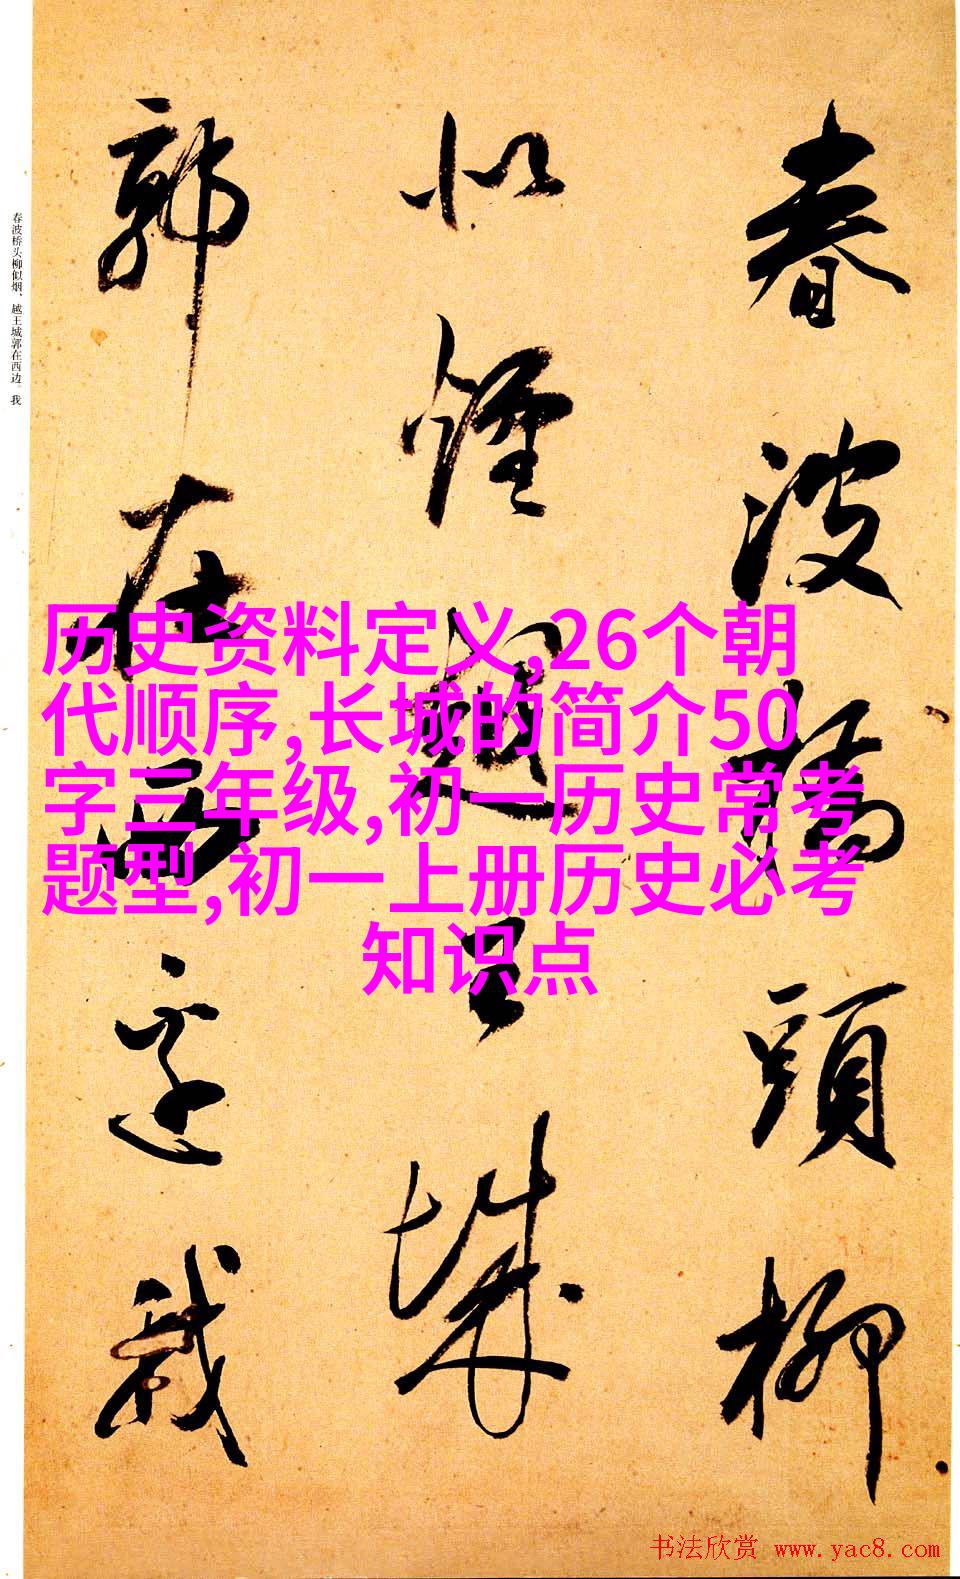 春波橋頭柳
似煙越王城
郭在西邊我
春波桥头柳似烟、越王城郭在西边。我
历史资料定义,26个朝
代顺序,长城的简介50
字三年级,初一历史常考
题型,初一上册历史必考
知识点
书法欣赏 www.yac8.com